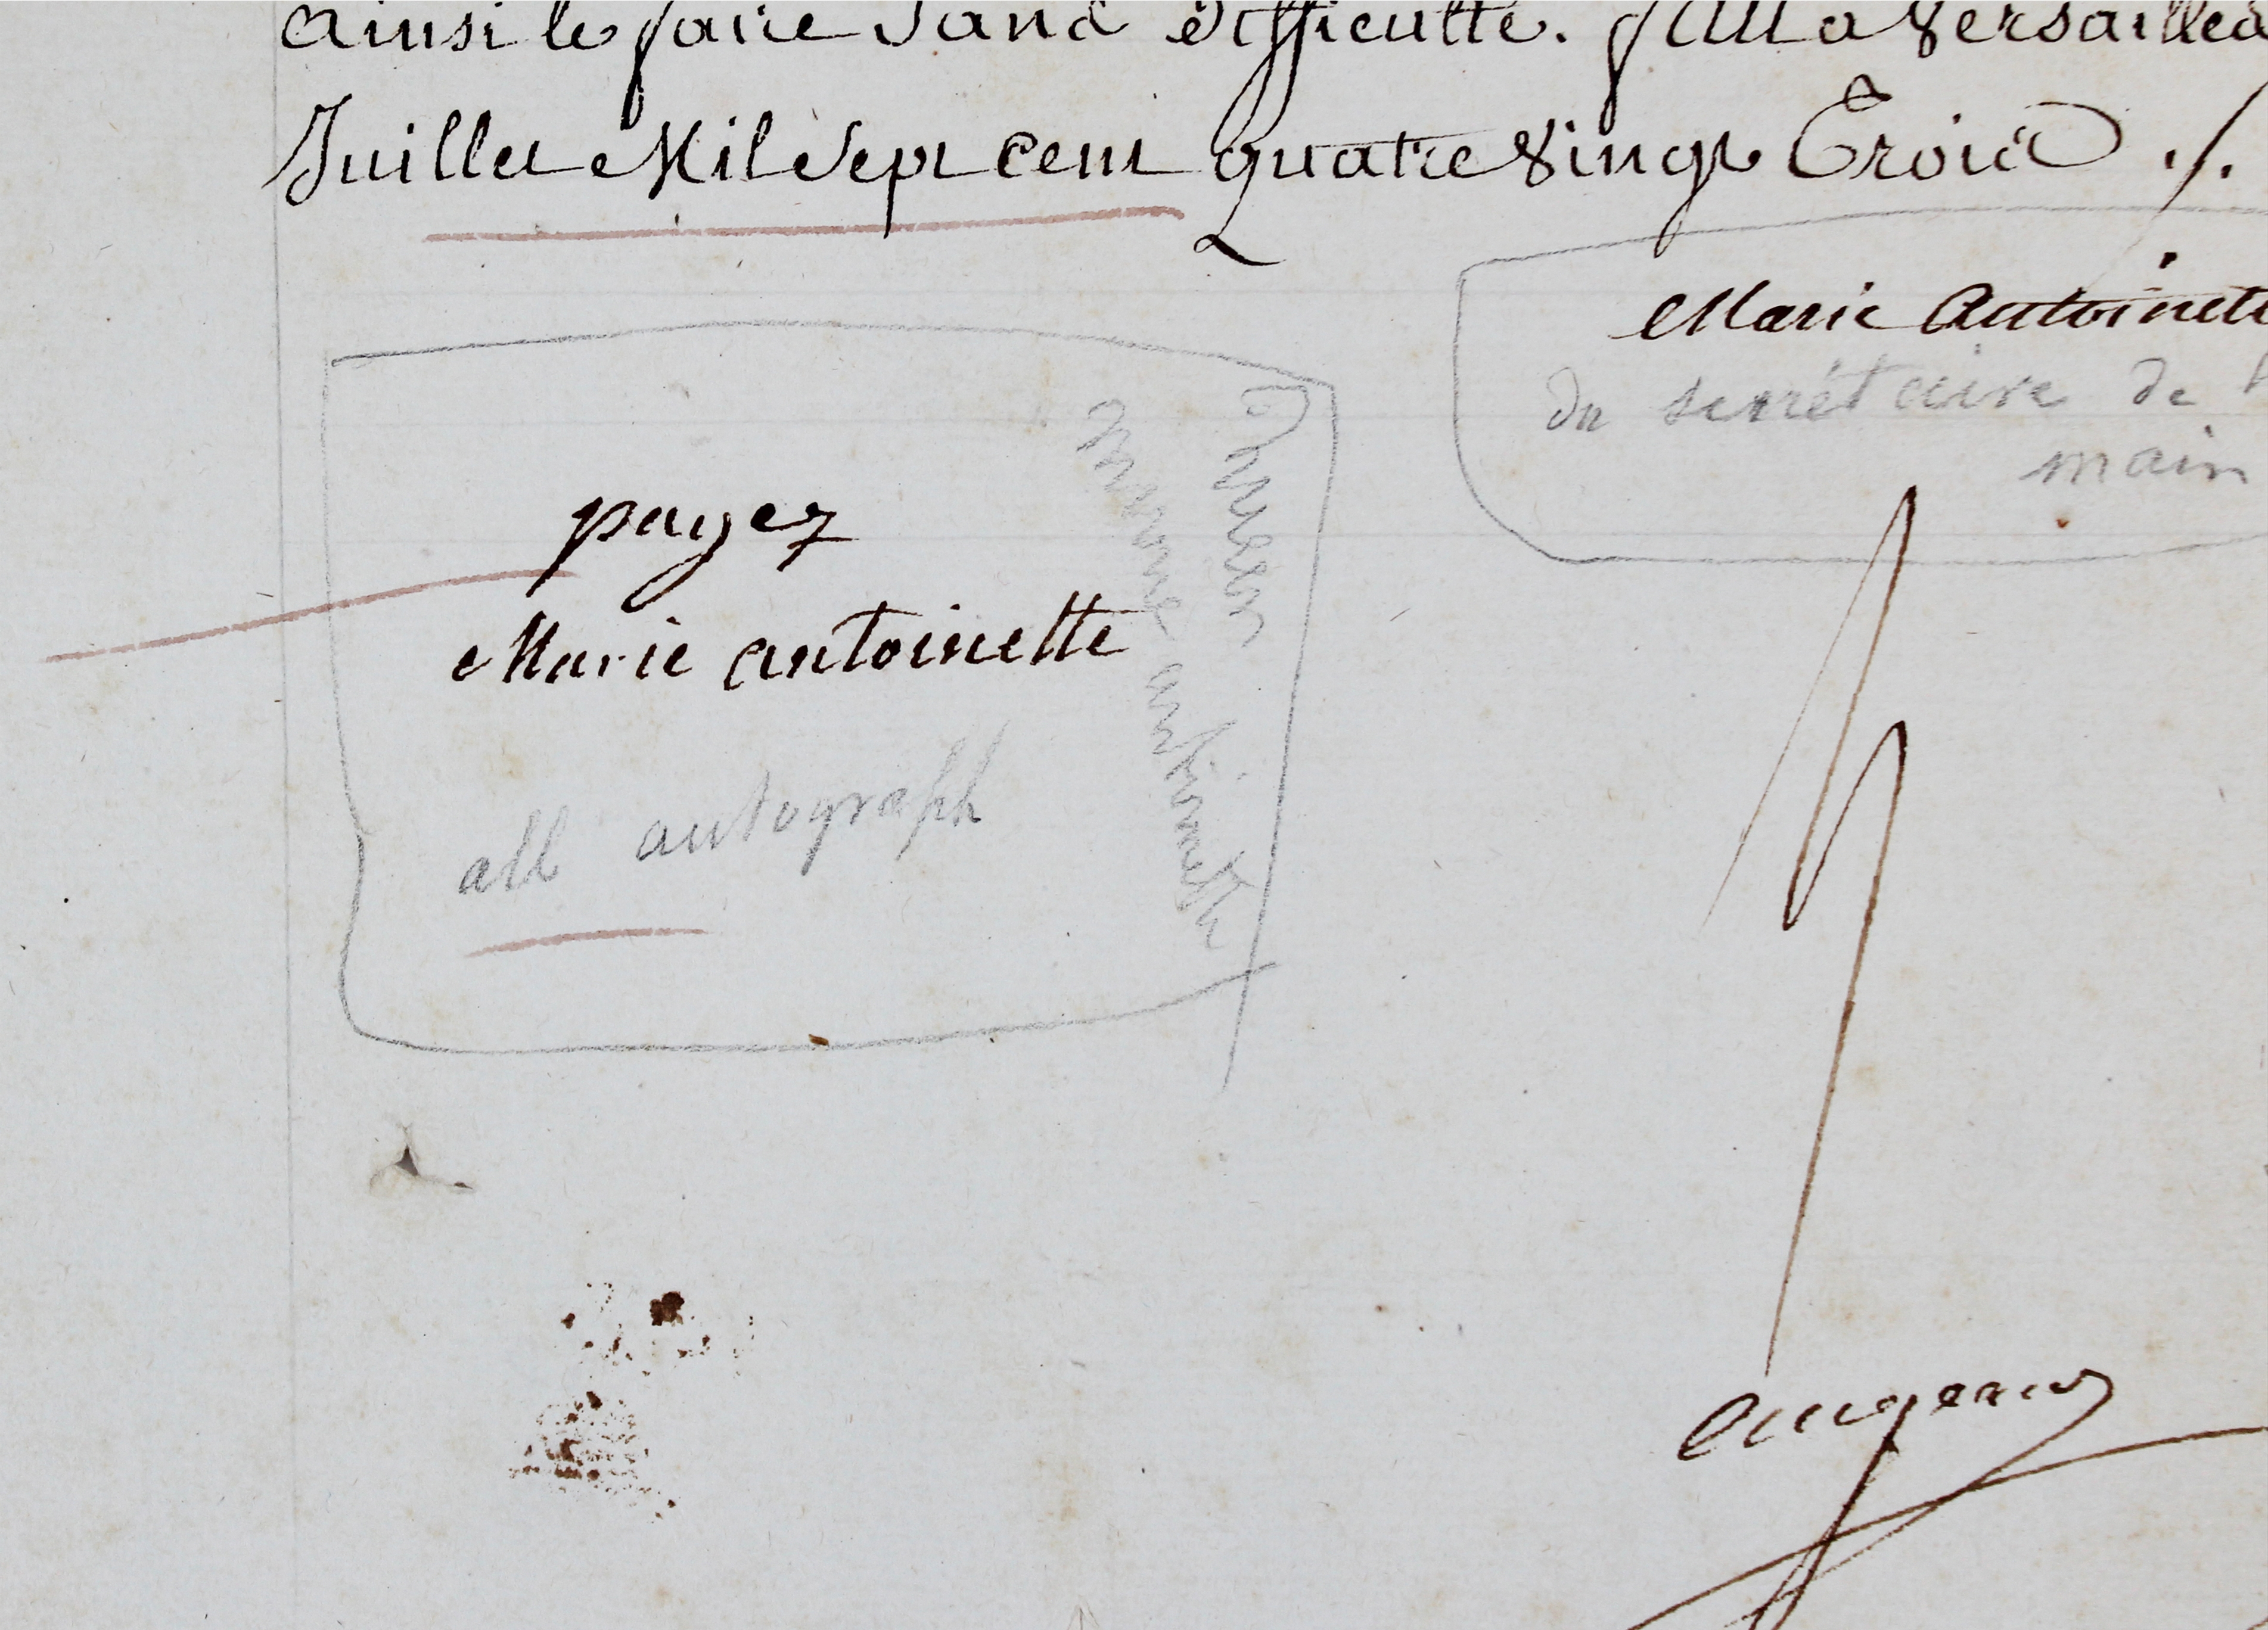 ainsi le faire sans difficulté. fait a Versailles
Juillet Mil Sept cent quatre Vingt Trois ./.
Marie Antoinett
du secrétaire de
main
payez
Marie antoinette
all autograph
Queen
Marie antionette
Augeard